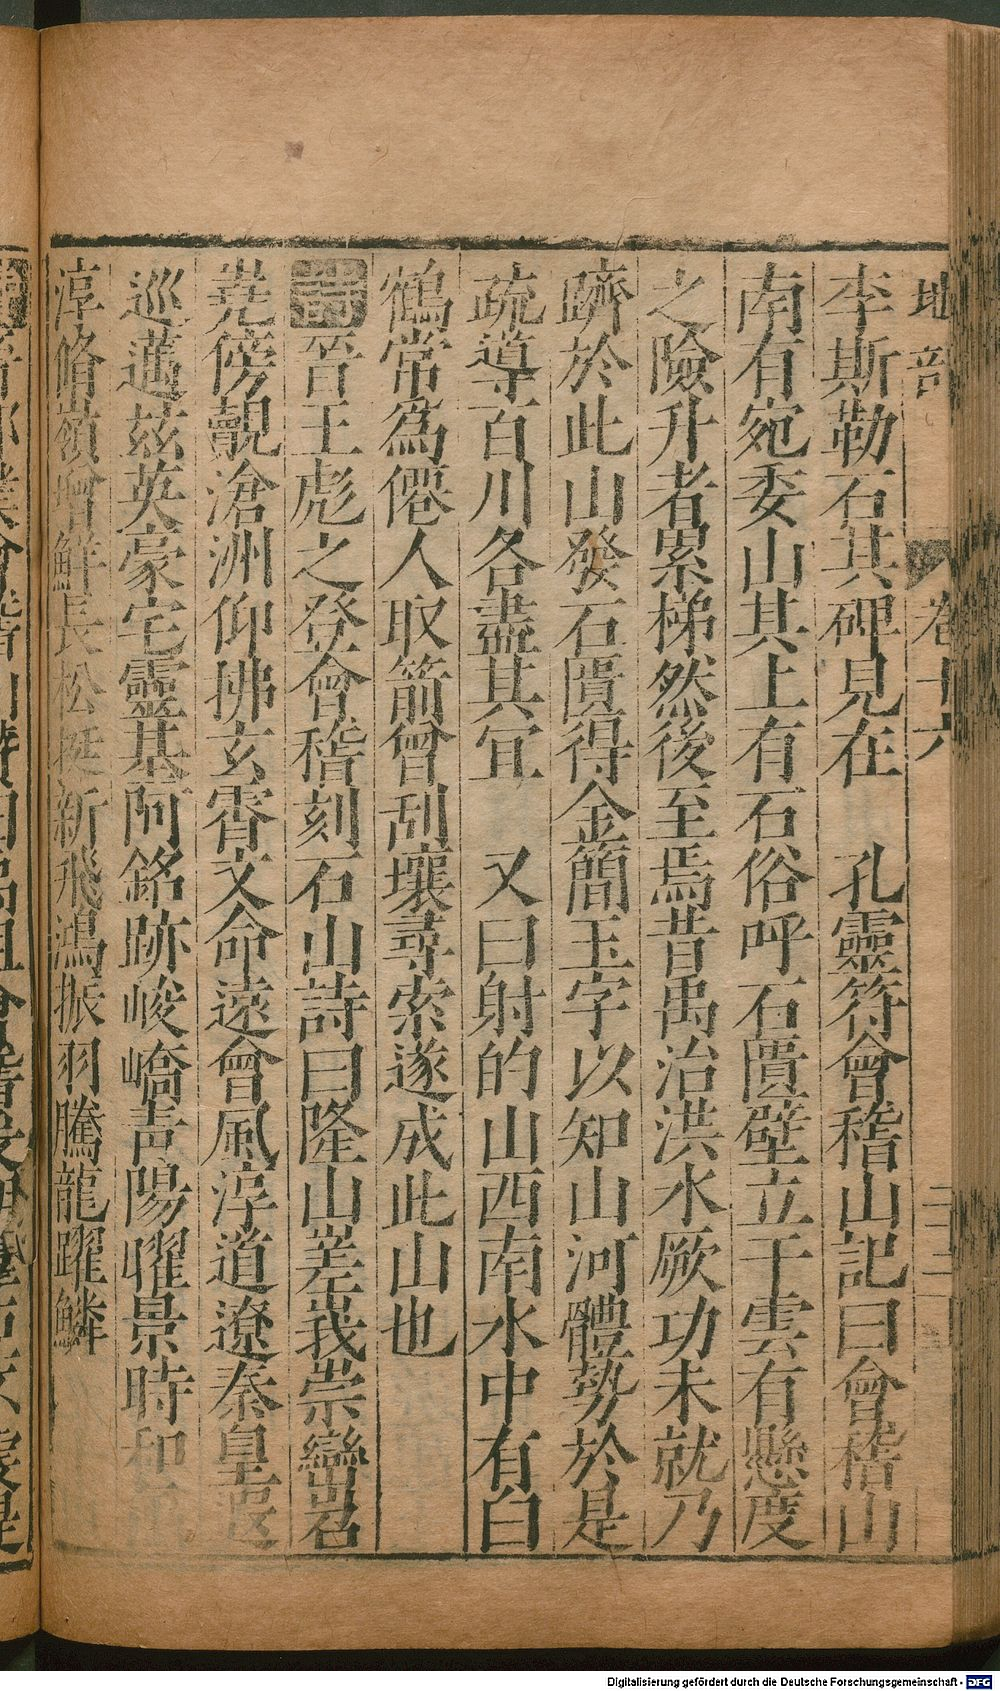 地部 卷十六
李斯勒石其碑見在 孔靈符會稽山記曰會稽山
南有宛委山其上有石俗呼石匱壁立干雲有懸度
之險升者累梯然後至焉昔禹治洪水厥功未就乃
躋於此山發石匱得金簡玉字以知山河體勢於是
疏導百川各盡其宜 又曰射的山西南水中有白
鶴常為僊人取箭曾刮壤尋索遂成此山也
詩晉王彪之登會稽刻石山詩曰隆山嵳峩崇巒岧
堯傍覿滄洲仰拂玄霄文命遠會風淳道遼秦皇遐
巡邁茲英豪宅靈基阿銘跡峻嶠青陽曜景時和
淳脩嶺增鮮長松挺新飛鴻振羽騰龍躍鱗
Digitalisierung gefördert durch die Deutsche Forschungsgemeinschaft - DFG